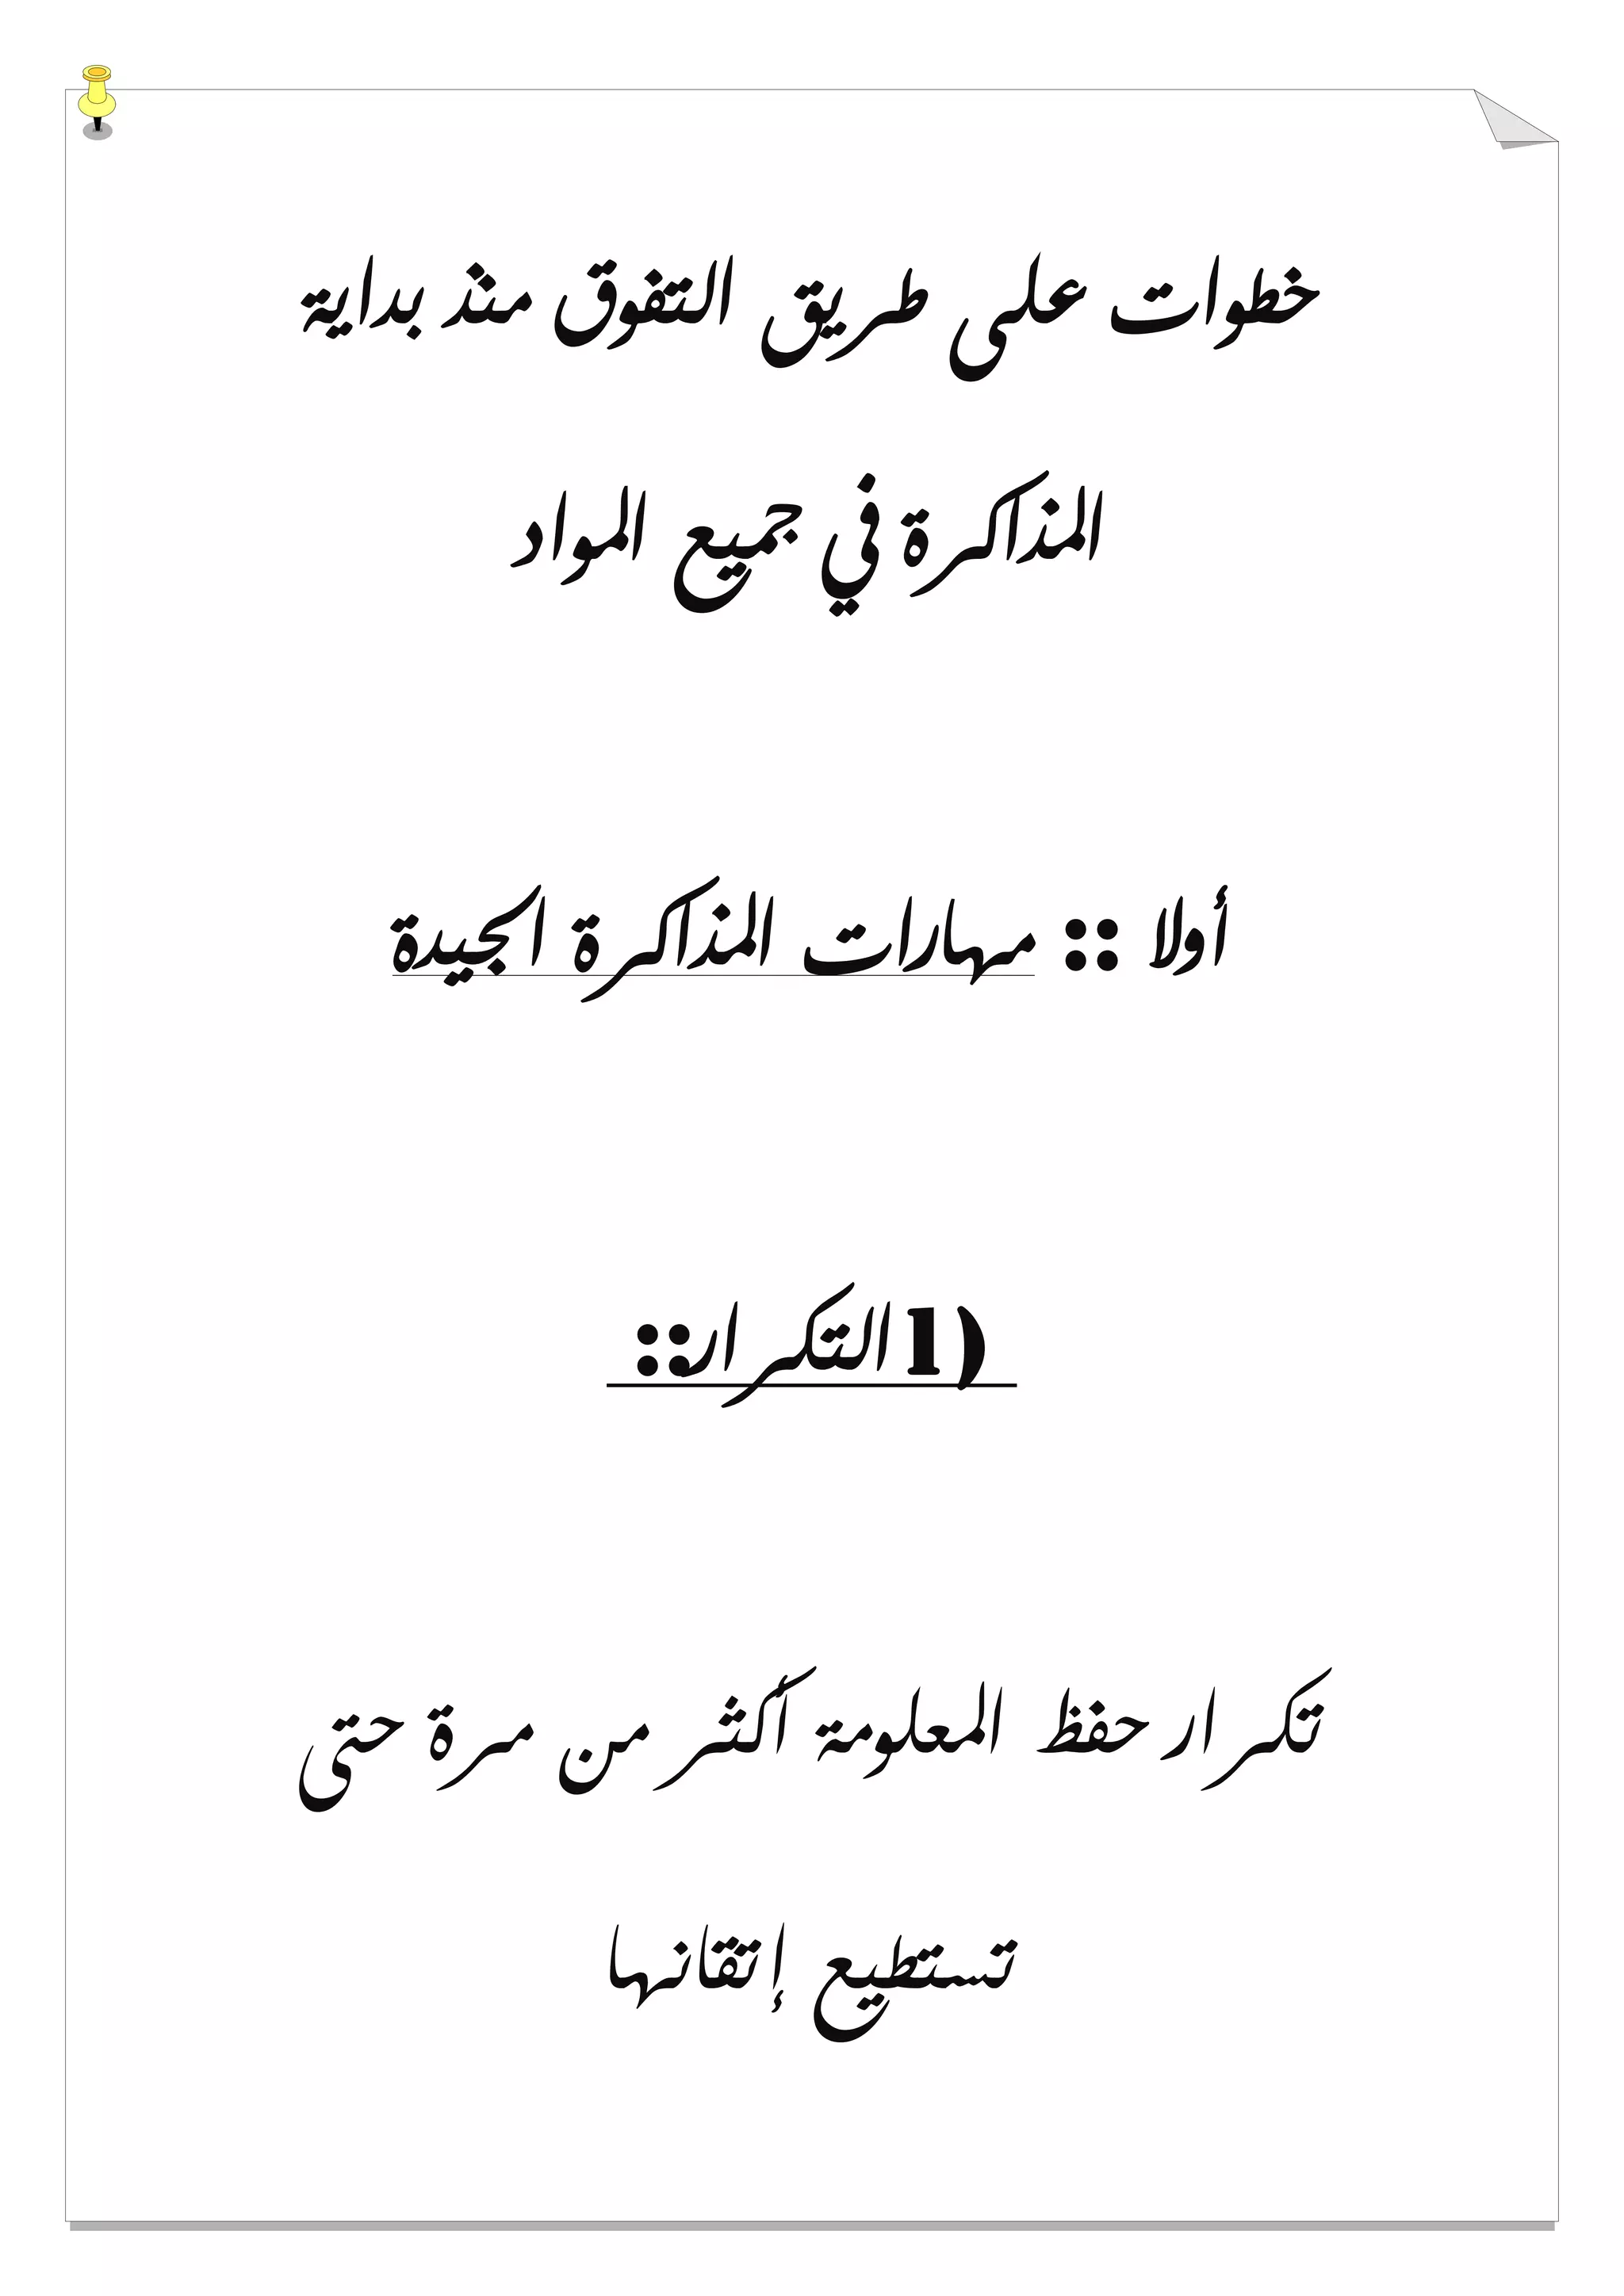 خطوات على طريق التفوق منذ بداية
المذاكرة في جميع المواد
أولا :: مهارات المذاكرة الجيدة
1) التكرار::
تكرار حفظ المعلومة أكثر من مرة حتى
تستطيع إتقانها